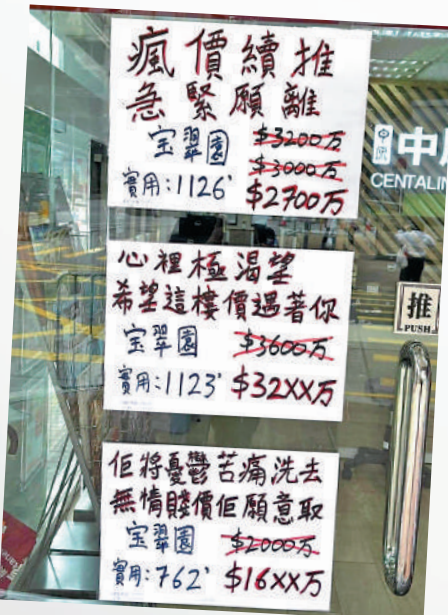 瘋價續推
急緊願離
宝翠園
$3200万
$3000万
實用:1126'
$2700万
心裡極渴望
希望這樓價遇著你
宝翠園
$3600万
實用:1123'
$32XX万
佢將憂鬱苦痛洗去
無情賤價佢願意取
宝翠園
$2000万
實用:762'
$16XX万
中原
中
CENTALIN
推
PUSH